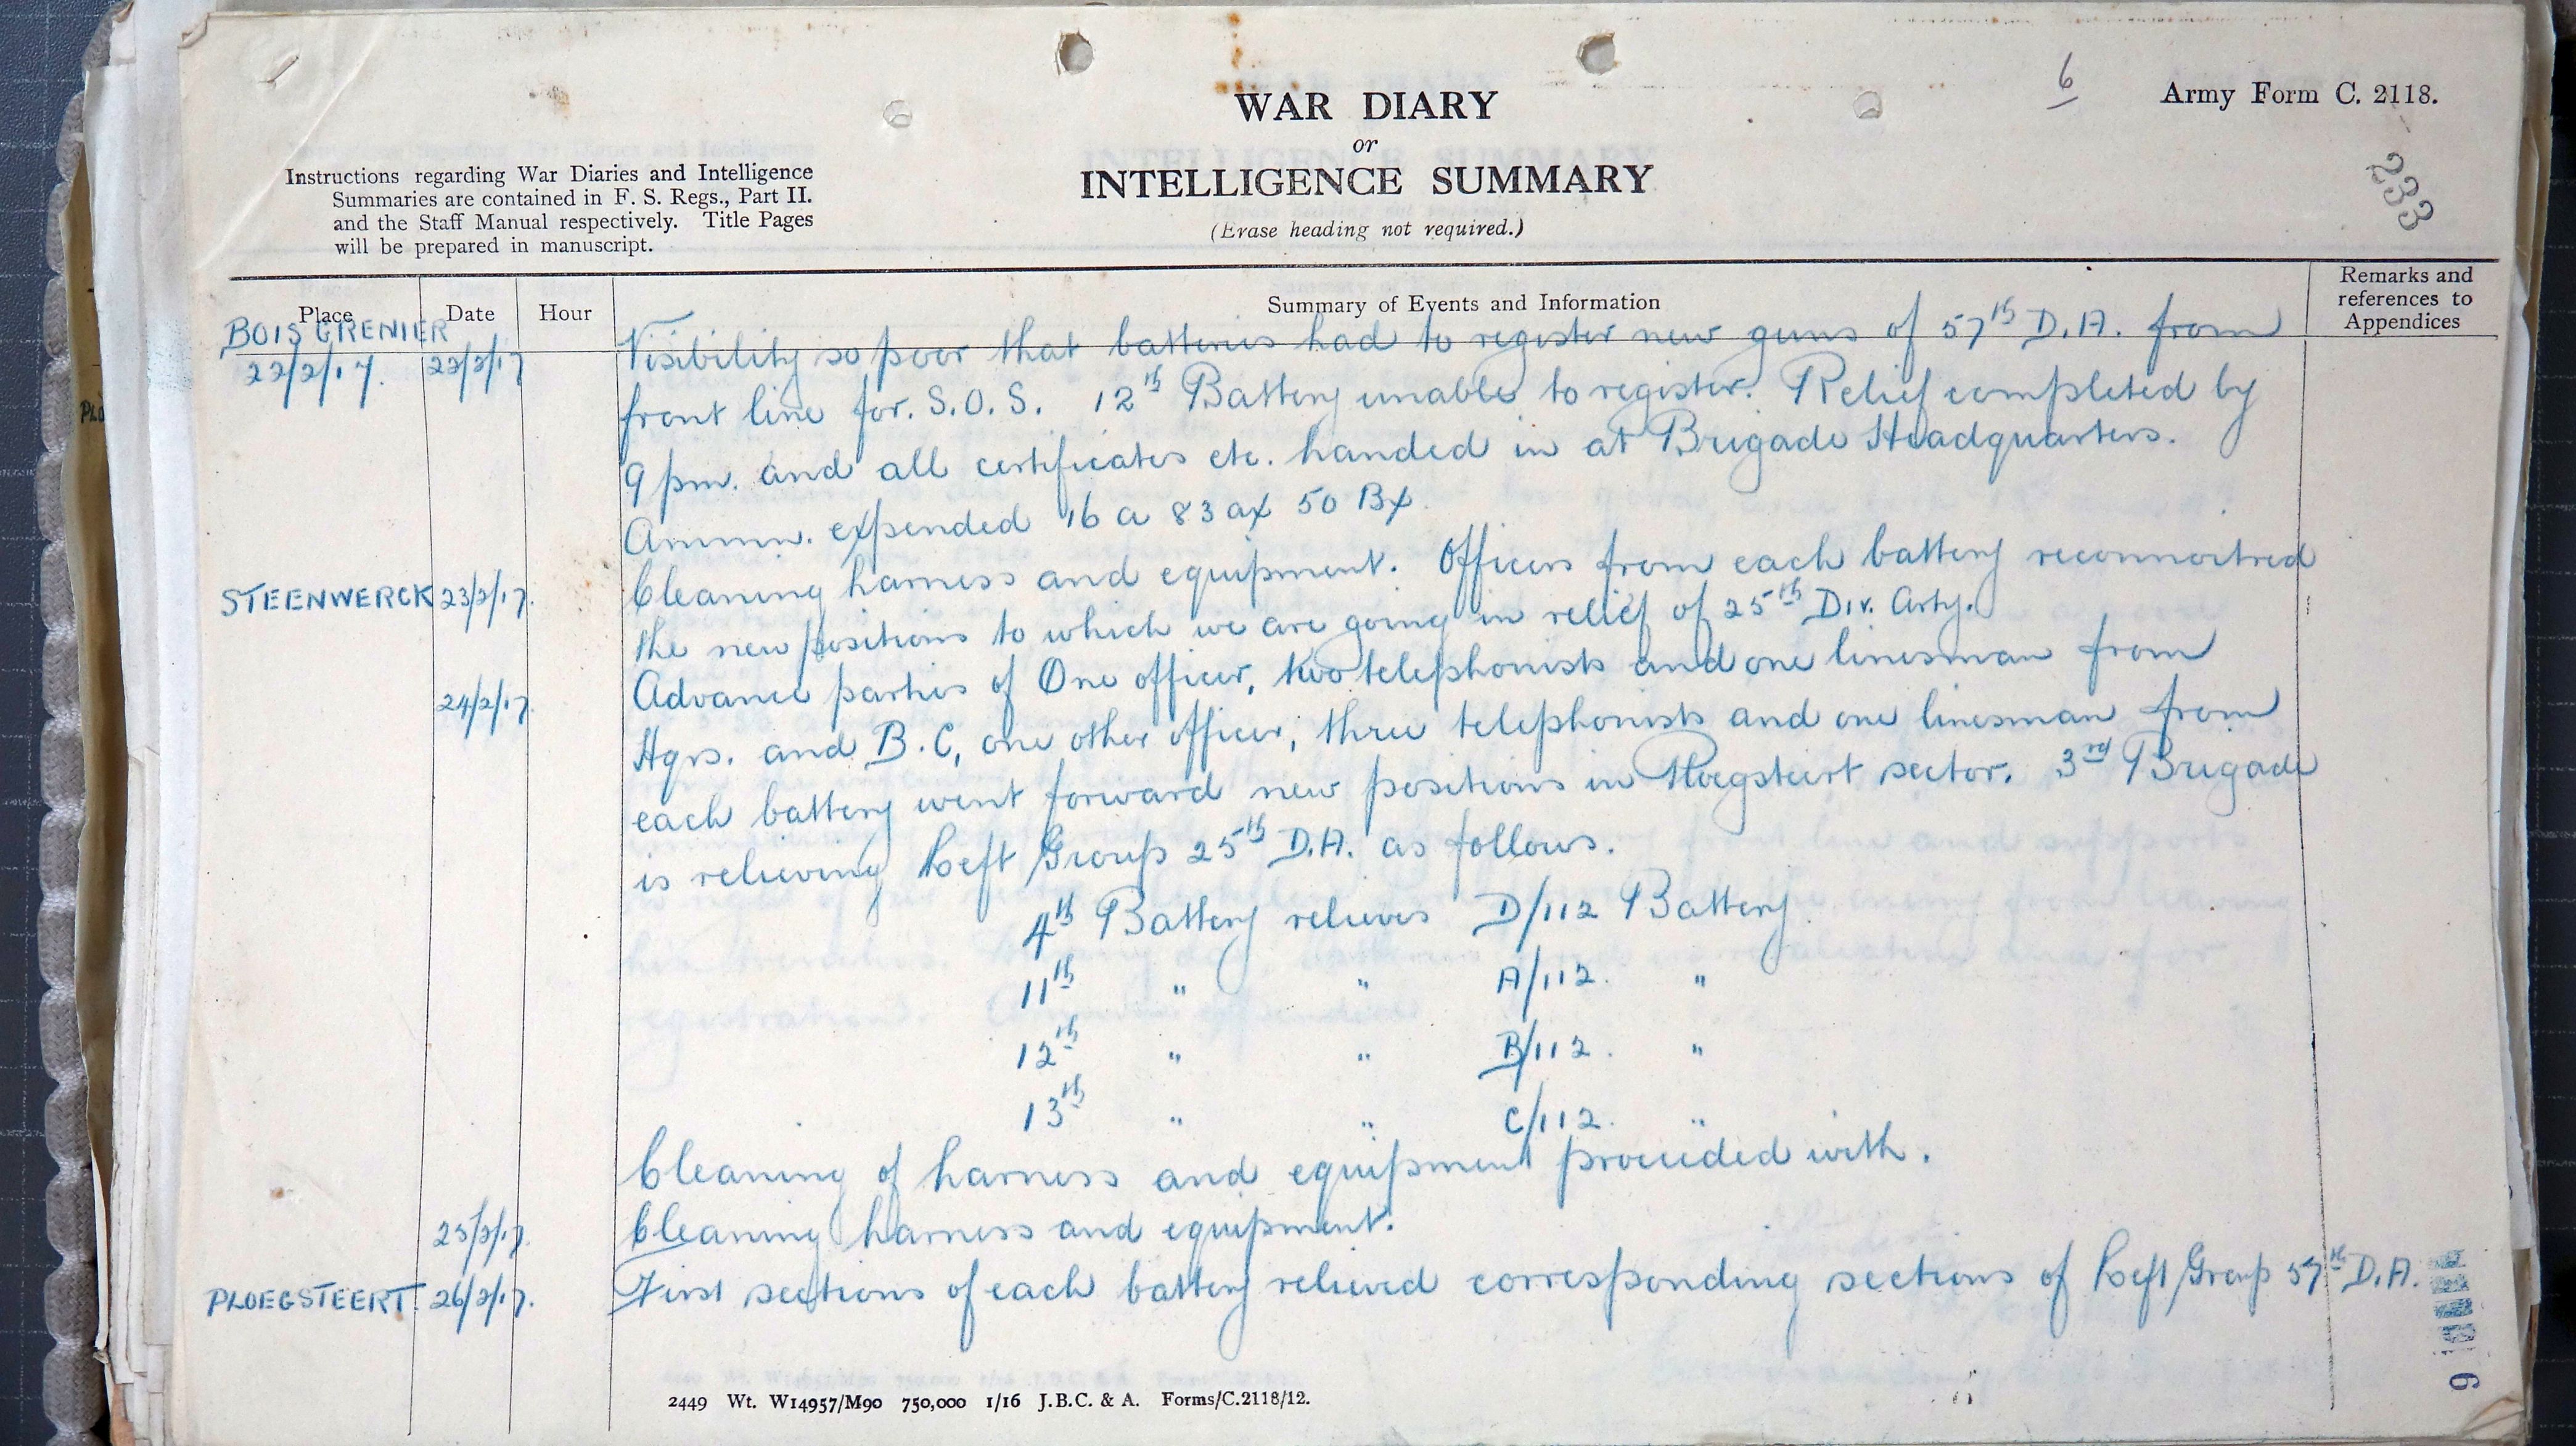 6
Army Form C. 2118.
WAR DIARY
or
INTELLIGENCE SUMMARY
(Erase heading not required.)
233
Instructions regarding War Diaries and Intelligence
Summaries are contained in F. S. Regs., Part II.
and the Staff Manual respectively. Title Pages
will be prepared in manuscript.
Place
Date
Hour
Summary of Events and Information
Remarks and
references to
Appendices
BOIS GRENIER
22/2/17. 22/2/17 Visibility so poor that batteries had to register new guns of 57th D.A. from
front line for. S.O.S. 12th Battery unable to register. Relief completed by
9 pm. and all certificates etc. handed in at Brigade Headquarters.
Ammn. expended 16 a 83 ax 50 Bx
STEENWERCK 23/2/17. Cleaning harness and equipment. Officers from each battery reconnoitred
the new positions to which we are going in relief of 25th Div. Arty.
24/2/17. Advance parties of One officer, two telephonists and one linesman from
Hqrs. and B.C, one other officer, three telephonists and one linesman from
each battery went forward new positions in Ploegsteert sector. 3rd Brigade
is relieving Left Group 25th D.A. as follows.
4th Battery relieves D/112 Battery.
11th " " A/112. "
12th " " B/112. "
13th " " C/112. "
Cleaning of harness and equipment proceeded with.
25/2/17. Cleaning harness and equipment.
PLOEGSTEERT. 26/2/17. First sections of each battery relieved corresponding sections of Left Group 57th D.A.
2449 Wt. W14957/M90 750,000 1/16 J.B.C. & A. Forms/C.2118/12.